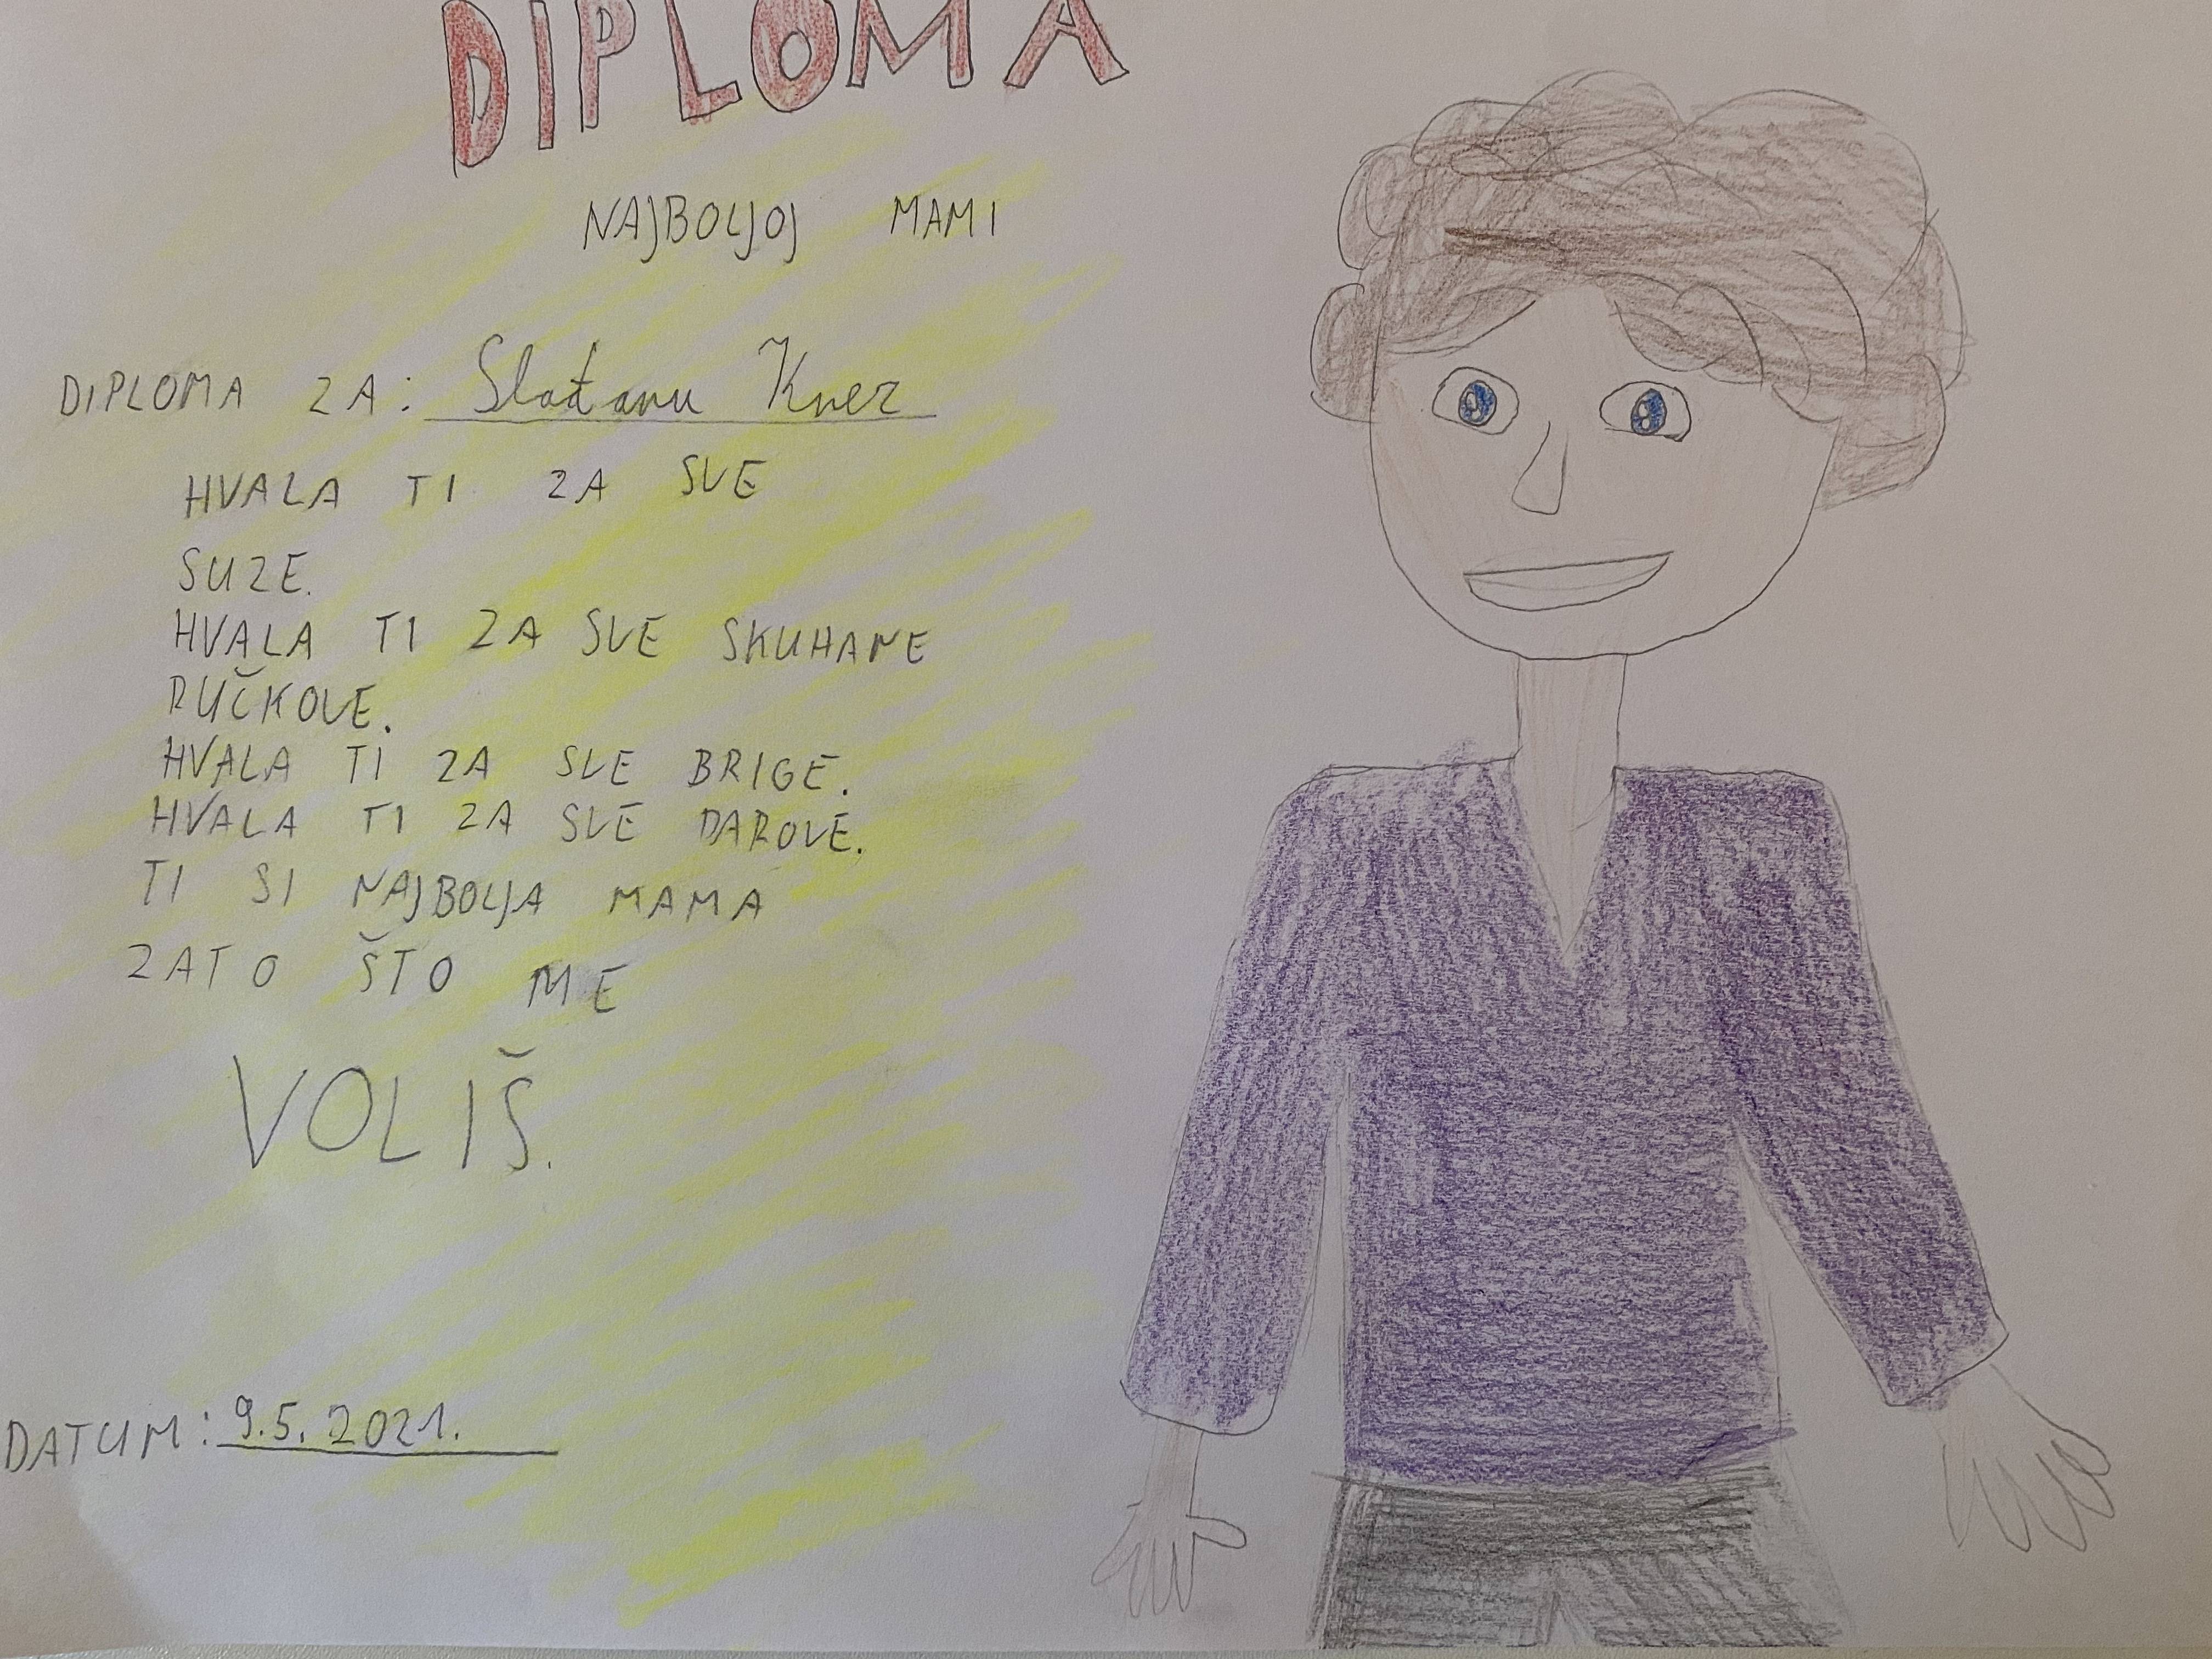 DIPLOMA
NAJBOLJOJ MAMI
DIPLOMA ZA: Slađanu Knez
HVALA TI ZA SVE
SUZE.
HVALA TI ZA SVE SKUHANE
RUČKOVE.
HVALA TI ZA SVE BRIGE.
HVALA TI ZA SVE DAROVE.
TI SI NAJBOLJA MAMA
ZATO ŠTO ME
VOLIŠ.
DATUM: 9.5.2021.